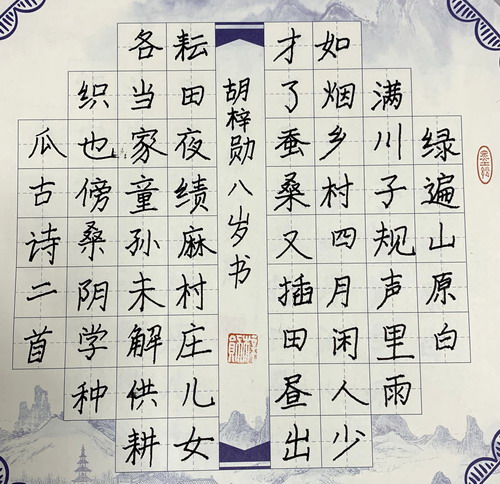 绿遍山原白
满川子规声里雨
如烟乡村四月闲人少
才了蚕桑又插田昼出
胡梓勋八岁书
耘田夜绩麻村庄儿女
各当家童孙未解供耕
织也傍桑阴学种
瓜古诗二首